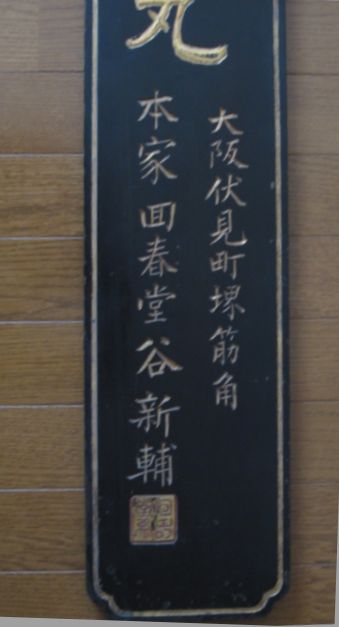 丸
大阪伏見町堺筋角
本家回春堂谷新輔